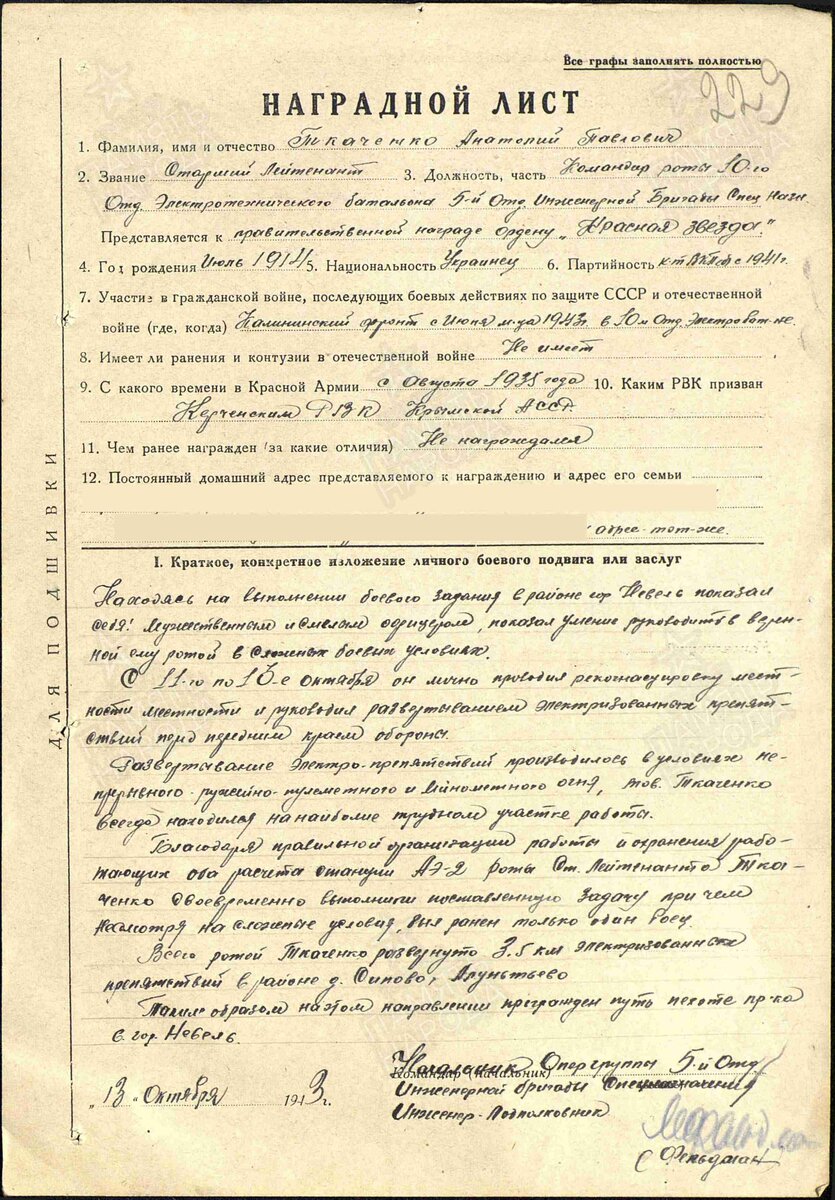 Все графы заполнять полностью
229
НАГРАДНОЙ ЛИСТ
1. Фамилия, имя и отчество Ткаченко Анатолий Павлович
2. Звание Старший Лейтенант 3. Должность, часть Командир роты 10-го
Отд. Электротехнического батальона 5-й Отд. Инженерной Бригады Спец Назн.
Представляется к правительственной награде ордену „Красная звезда"
4. Год рождения Июль 1914 5. Национальность Украинец 6. Партийность к-т ВКП(б) с 1941 г.
7. Участие в гражданской войне, последующих боевых действиях по защите СССР и отечественной
войне (где, когда) Калининский фронт с Июня м-ца 1943г. в 10м Отд. Электробат-не.
8. Имеет ли ранения и контузии в отечественной войне Не имеет
9. С какого времени в Красной Армии с Августа 1935 года 10. Каким РВК призван
Керченским РВК Крымской АССР.
11. Чем ранее награжден (за какие отличия) Не награждался
12. Постоянный домашний адрес представляемого к награждению и адрес его семьи
адрес тот-же.
ДЛЯ ПОДШИВКИ
I. Краткое, конкретное изложение личного боевого подвига или заслуг
Находясь на выполнении боевого задания в районе гор Невель показал
себя! Мужественным и смелым офицером, показал умение руководить в верен-
ной ему ротой в сложных боевых условиях.
С 11-го по 13-е октября он лично проводил рекогнасцировку мест-
ности местности и руководил развертыванием электризованных препят-
ствий перед передним краем обороны.
Развертывание электро-препятствий производилось в условиях не-
прерывного ружейно-пулеметного и минометного огня, тов. Ткаченко
всегда находился на наиболие трудном участке работы.
Благодаря правильной организации работы и охранения рабо-
тающих оба расчета станции АЭ-2 роты Ст. Лейтенанта Тка-
ченко своевременно выполнили поставленную задачу при чем
несмотря на сложные условия, был ранен только один боец.
Всего ротой Ткаченко развернуто 3,5 км электризованных
препятствий в районе д. Сипово,
Таким образом на этом направлении прегражден путь пехоте пр-ка
в гор. Невель.
Командир (начальник)
Начальник Опергруппы 5-й Отд.
Инженерной бригады Спецназначения
Инженер-Подполковник
"13" Октября 1943 г.
Фельдман